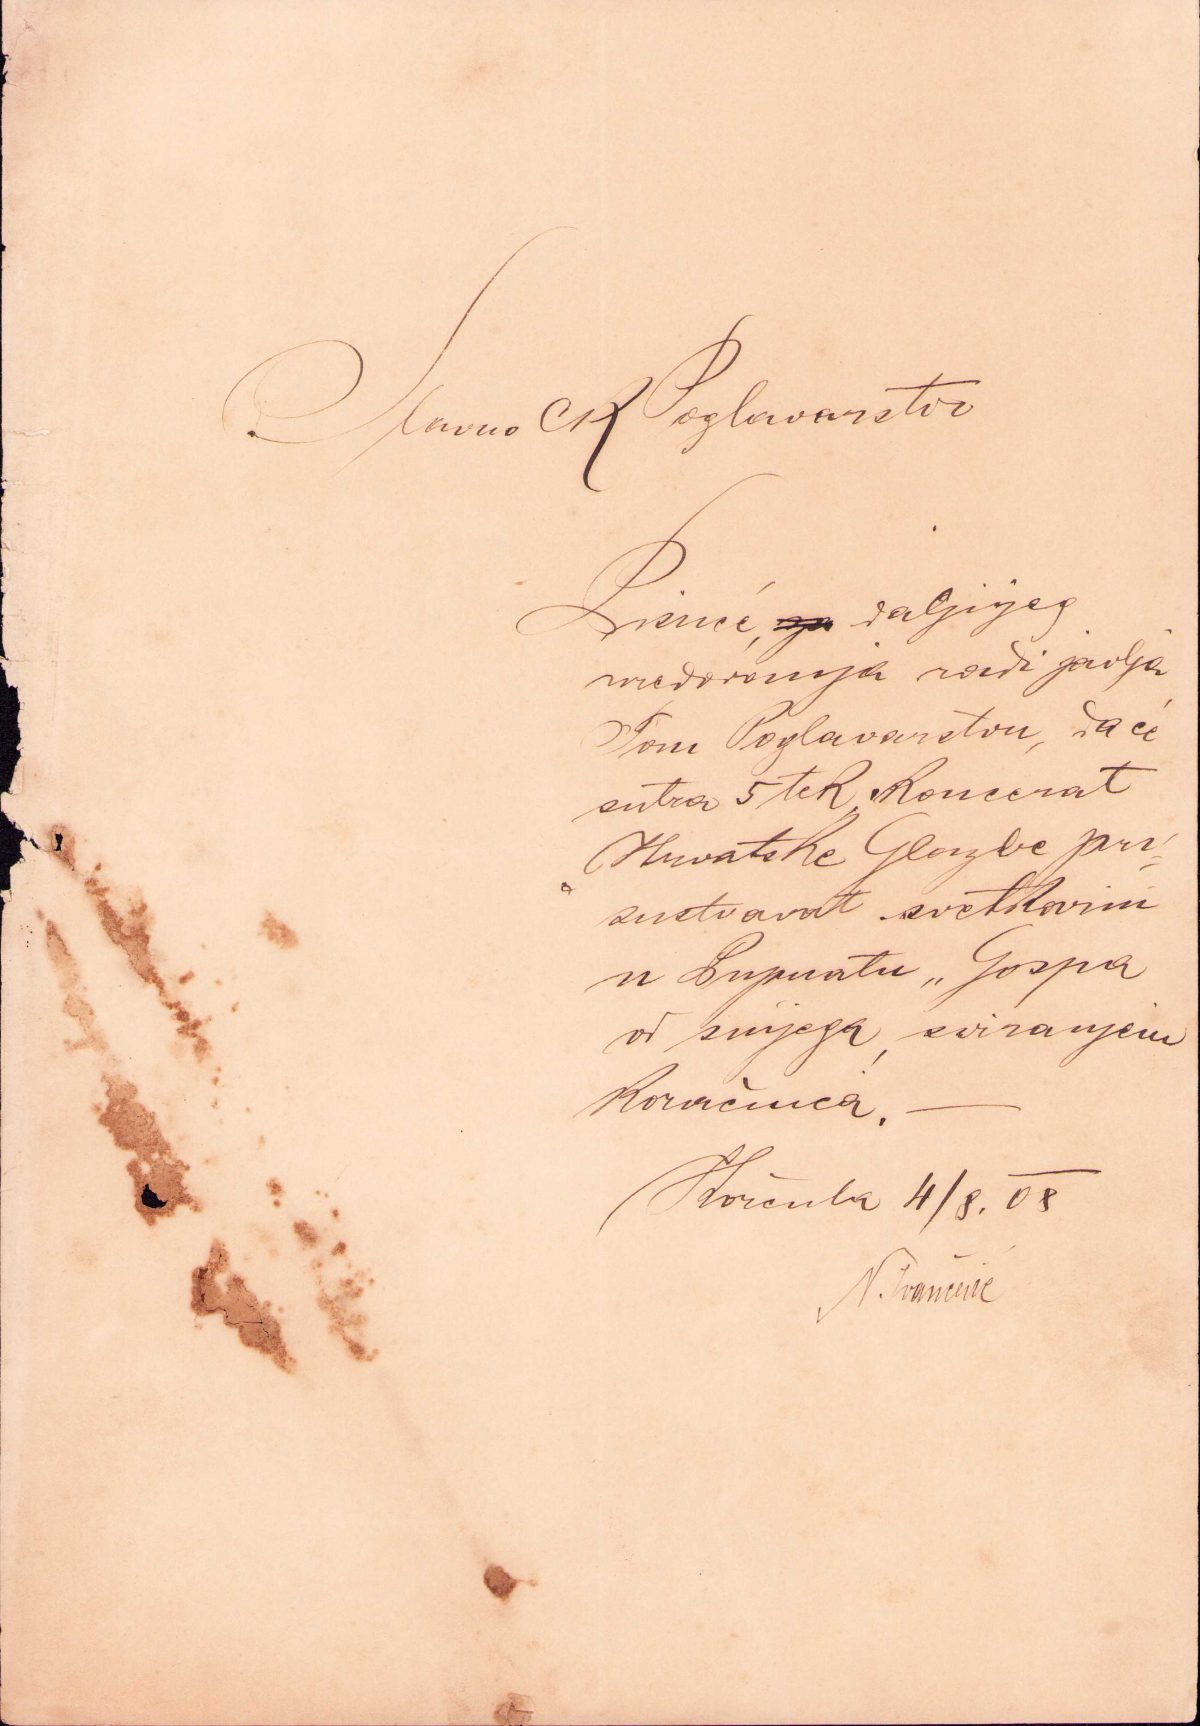 Slavno CK Poglavarstvo
Pisuće, za daljnjeg
uredovanja radi javlja
Tom Poglavarstvu, da će
sutra 5 tek. koncerat
Hrvatske Glazbe pri=
sustvovat svetkovini
u Lupnatu „Gospa
od snijega, sviranjem
koračnica. —
Korčula 4/8. 08
N. Ivančević